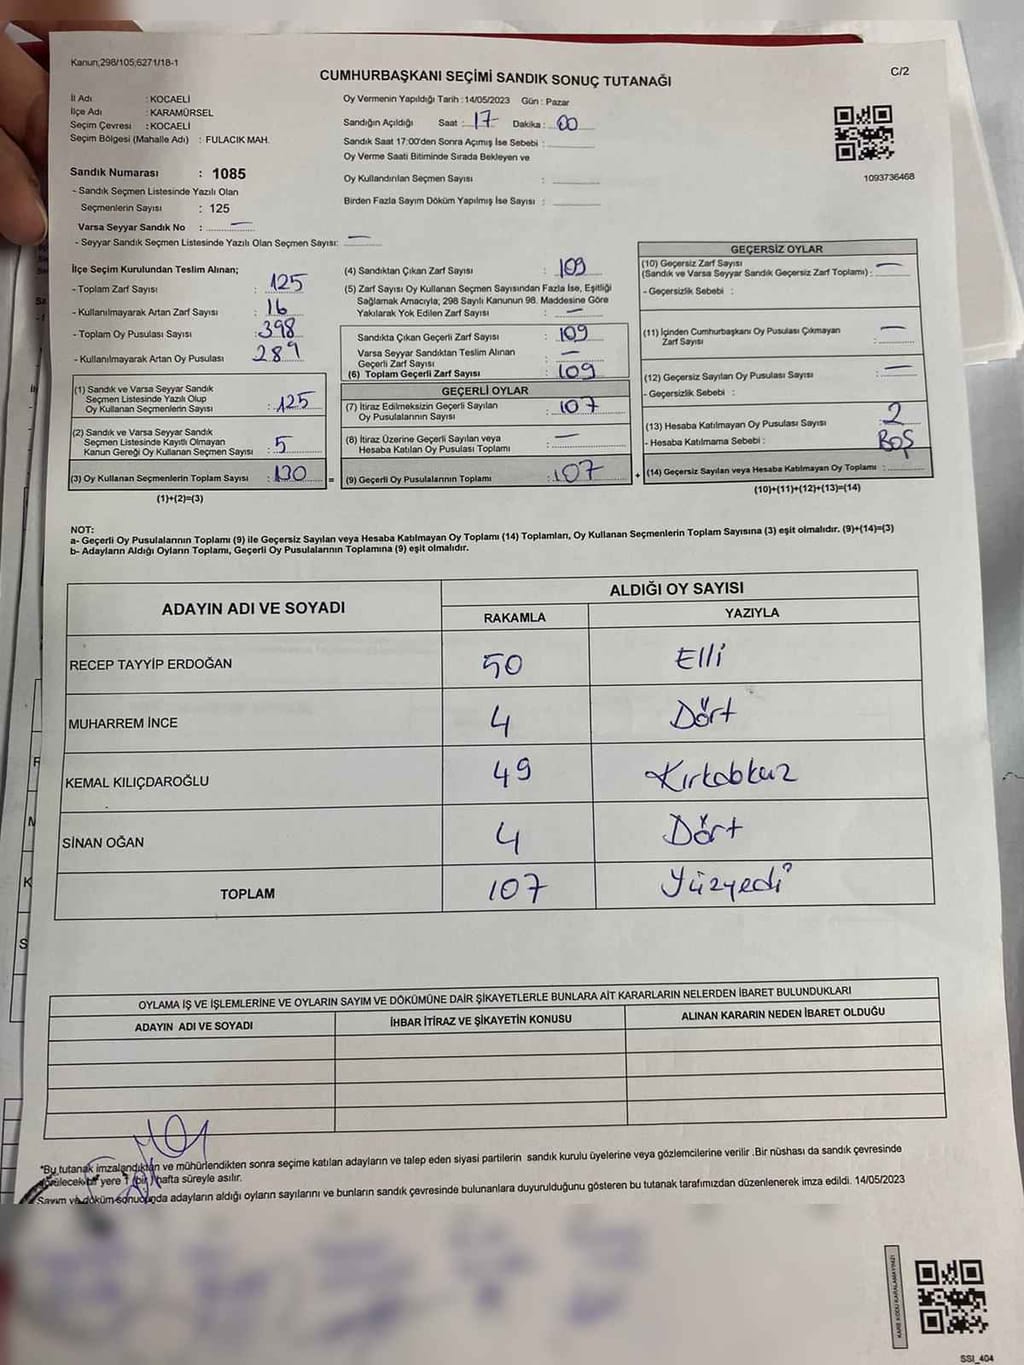 Kanun;298/105;6271/18-1
CUMHURBAŞKANI SEÇİMİ SANDIK SONUÇ TUTANAĞI
C/2
İl Adı : KOCAELİ
İlçe Adı : KARAMÜRSEL
Seçim Çevresi : KOCAELİ
Seçim Bölgesi (Mahalle Adı) : FULACIK MAH.
Sandık Numarası : 1085
- Sandık Seçmen Listesinde Yazılı Olan
Seçmenlerin Sayısı : 125
Varsa Seyyar Sandık No : —
- Seyyar Sandık Seçmen Listesinde Yazılı Olan Seçmen Sayısı: —
Oy Vermenin Yapıldığı Tarih : 14/05/2023 Gün : Pazar
Sandığın Açıldığı Saat : 17 Dakika : 00
Sandık Saat 17:00'den Sonra Açımış İse Sebebi :
Oy Verme Saati Bitiminde Sırada Bekleyen ve
Oy Kullandırılan Seçmen Sayısı :
Birden Fazla Sayım Döküm Yapılmış İse Sayısı :
1093736468
İlçe Seçim Kurulundan Teslim Alınan;
- Toplam Zarf Sayısı : 125
- Kullanılmayarak Artan Zarf Sayısı : 16
- Toplam Oy Pusulası Sayısı : 398
- Kullanılmayarak Artan Oy Pusulası 289
(1) Sandık ve Varsa Seyyar Sandık
Seçmen Listesinde Yazılı Olup
Oy Kullanan Seçmenlerin Sayısı : 125
(2) Sandık ve Varsa Seyyar Sandık
Seçmen Listesinde Kayıtlı Olmayan
Kanun Gereği Oy Kullanan Seçmen Sayısı : 5
(3) Oy Kullanan Seçmenlerin Toplam Sayısı : 130 =
(1)+(2)=(3)
(4) Sandıktan Çıkan Zarf Sayısı : 109
(5) Zarf Sayısı Oy Kullanan Seçmen Sayısından Fazla İse, Eşitliği
Sağlamak Amacıyla; 298 Sayılı Kanunun 98. Maddesine Göre
Yakılarak Yok Edilen Zarf Sayısı : —
Sandıkta Çıkan Geçerli Zarf Sayısı : 109
Varsa Seyyar Sandıktan Teslim Alınan
Geçerli Zarf Sayısı : —
(6) Toplam Geçerli Zarf Sayısı : 109
GEÇERLİ OYLAR
(7) İtiraz Edilmeksizin Geçerli Sayılan
Oy Pusulalarının Sayısı : 107
(8) İtiraz Üzerine Geçerli Sayılan veya
Hesaba Katılan Oy Pusulası Toplamı : —
(9) Geçerli Oy Pusulalarının Toplamı : 107 +
GEÇERSİZ OYLAR
(10) Geçersiz Zarf Sayısı
(Sandık ve Varsa Seyyar Sandık Geçersiz Zarf Toplamı) : —
- Geçersizlik Sebebi :
(11) İçinden Cumhurbaşkanı Oy Pusulası Çıkmayan
Zarf Sayısı : —
(12) Geçersiz Sayılan Oy Pusulası Sayısı : —
- Geçersizlik Sebebi :
(13) Hesaba Katılmayan Oy Pusulası Sayısı : 2
- Hesaba Katılmama Sebebi : BOŞ
(14) Geçersiz Sayılan veya Hesaba Katılmayan Oy Toplamı :
(10)+(11)+(12)+(13)=(14)
NOT:
a- Geçerli Oy Pusulalarının Toplamı (9) ile Geçersiz Sayılan veya Hesaba Katılmayan Oy Toplamı (14) Toplamları, Oy Kullanan Seçmenlerin Toplam Sayısına (3) eşit olmalıdır. (9)+(14)=(3)
b- Adayların Aldığı Oyların Toplamı, Geçerli Oy Pusulalarının Toplamına (9) eşit olmalıdır.
ADAYIN ADI VE SOYADI ALDIĞI OY SAYISI
RAKAMLA YAZIYLA
RECEP TAYYİP ERDOĞAN 50 Elli
MUHARREM İNCE 4 Dört
KEMAL KILIÇDAROĞLU 49 Kırkdokuz
SİNAN OĞAN 4 Dört
TOPLAM 107 Yüzyedi
OYLAMA İŞ VE İŞLEMLERİNE VE OYLARIN SAYIM VE DÖKÜMÜNE DAİR ŞİKAYETLERLE BUNLARA AİT KARARLARIN NELERDEN İBARET BULUNDUKLARI
ADAYIN ADI VE SOYADI İHBAR İTİRAZ VE ŞİKAYETİN KONUSU ALINAN KARARIN NEDEN İBARET OLDUĞU
*Bu tutanak imzalandıktan ve mühürlendikten sonra seçime katılan adayların ve talep eden siyasi partilerin sandık kurulu üyelerine veya gözlemcilerine verilir .Bir nüshası da sandık çevresinde
yere 1 (bir) hafta süreyle asılır.
Sayım ve döküm sonucunda adayların aldığı oyların sayılarını ve bunların sandık çevresinde bulunanlara duyurulduğunu gösteren bu tutanak tarafımızdan düzenlenerek imza edildi. 14/05/2023
KARE KODU KARALAMAYINIZ!
SSI_404